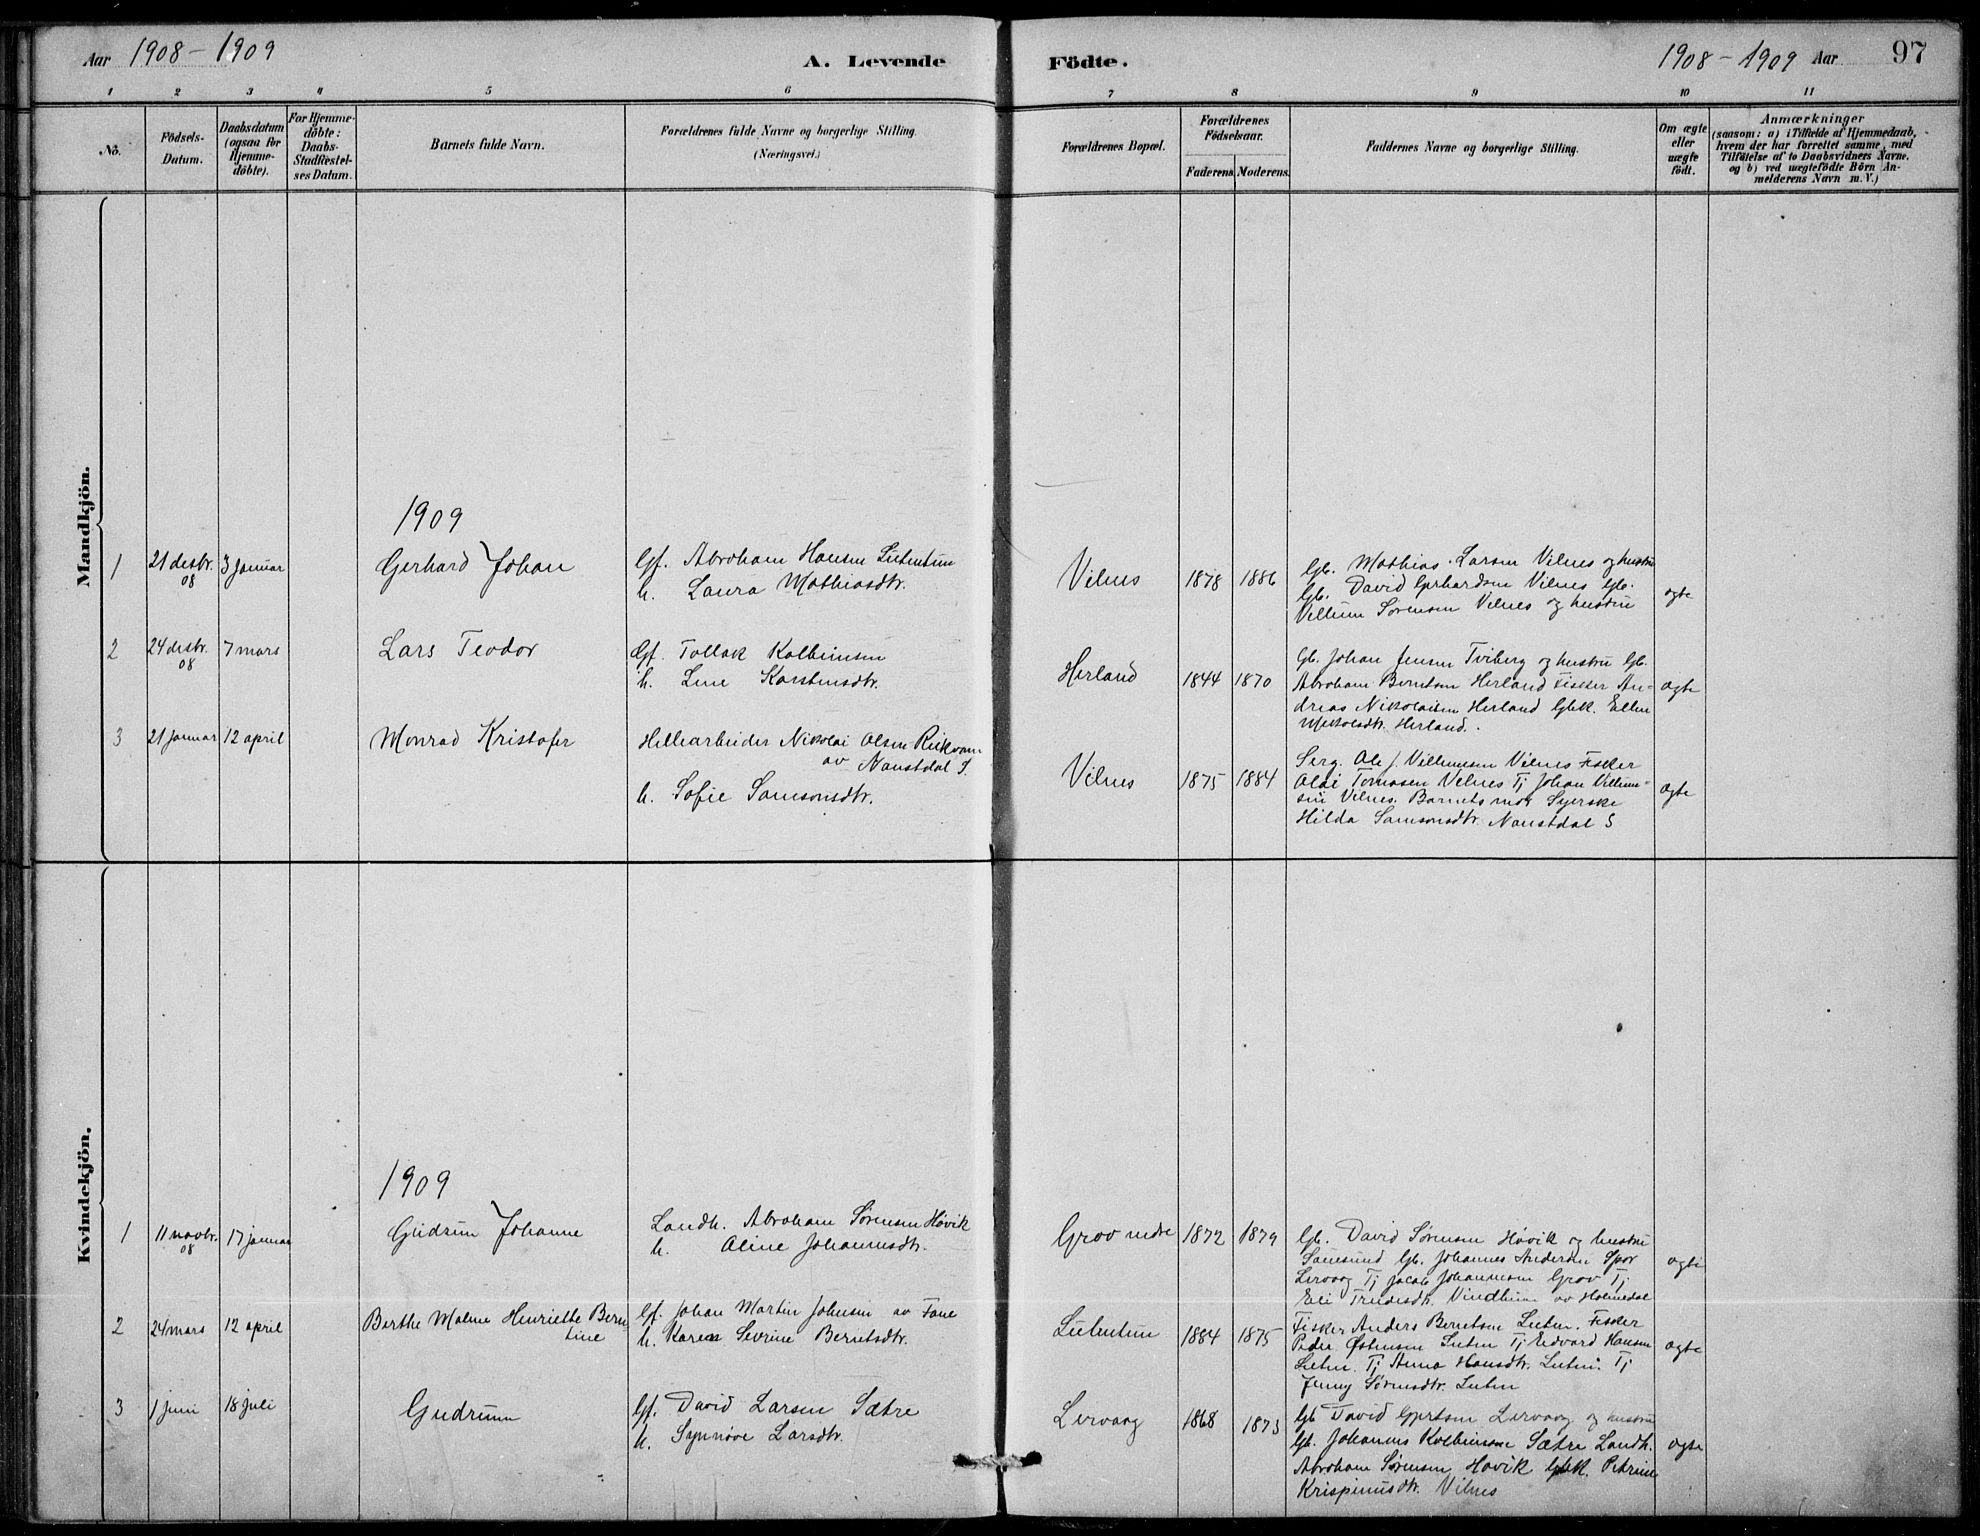 Aar 1908-1909
A. Levende Födte.
1908-1909 Aar 97
1 2 3 4 5 6 7 8 9 10 11
No.
Födsels-Datum.
Daabsdatum (ogsaa for Hjemmedöbte).
For Hjemmedöbte: Daabs-Stadfæstelses Datum.
Barnets fulde Navn.
Forældrenes fulde Navne og borgerlige Stilling. (Næringsvei.)
Forældrenes Bopæl.
Forældrenes Födselsaar.
Faderens. Moderens.
Faddernes Navne og borgerlige Stilling.
Om ægte eller uægte födt.
Anmærkninger
(saasom: a) i Tilfælde af Hjemmedaab, hvem der har forrettet samme, med Tilföielse af to Daabsvidners Navne, og b) ved uægtefödte Börn Anmelderens Navn m. V.)
Mandkjön.
1909
1 21 desbr. 08 3 januar Gerhard Johan
Gf. Abraham Hansen
h. Laura Mathiasdtr.
Vilnes 1878 1886
Gb. Mathias Larsen Vilnes og hustru
Gb. David Gerhardsen Vilnes Gb.
Villum Sørensen Vilnes og hustru
ægte
2 24 desbr. 08 7 mars Lars Teodor
Gf. Tollak Kolbeinsen
h. Line Karstensdtr.
Herland 1844 1870
Gb. Johan Jensen Tviberg og hustru Gb.
Abraham Berntsen Herland Fisker An-
dreas Nikolaisen Herland Gbk. Ellen
Herland.
ægte
3 21 januar 12 april Monrad Kristofer
Hellearbeider Nikolai Olsen
av Naustdal S.
h. Sofie Samsonsdtr.
Vilnes 1875 1884
Serg. Ole J. Villumsen Vilnes Fisker
Olai Tomasen Vilnes Tj Johan Villum-
sen Vilnes. Barnets mor Syerske
Hilda Samsonsdtr. Naustdal S
ægte
Kvindekjön.
1909
1 11 novbr. 08 17 januar Gudrun Johanne
Landh. Abraham Sørensen Høvik
h. Aline Johannesdtr.
Grov nedre 1872 1879
Gb. David Sørensen Høvik og hustru
Gb. Johannes Andersen
Lervaag Tj Jacob Johannesen Grov Tj
Eli Vindheim av Holmedal
ægte
2 24 mars 12 april Berthe Malene Henriette Bern-
tine
Gf. Johan Martin Johnsen av Fane
h. Karen Sevrine Berntsdtr.
1884 1875
Fisker Anders Berntsen Fisker
Peder Østensen Tj Edvard Hansen
Tj Anna Hansdtr. Tj
Jenny Sørensdtr.
ægte
3 1 juni 18 juli Gudrunn
Gf. David Larsen Sætre
h. Synnøve Larsdtr.
Lervaag 1868 1873
Gb David Lervaag og hustru
Gb. Johannes Kolbeinsen Sætre Landh.
Abraham Sørensen Høvik Gbk. Petrine
Krispinusdtr. Vilnes
ægte